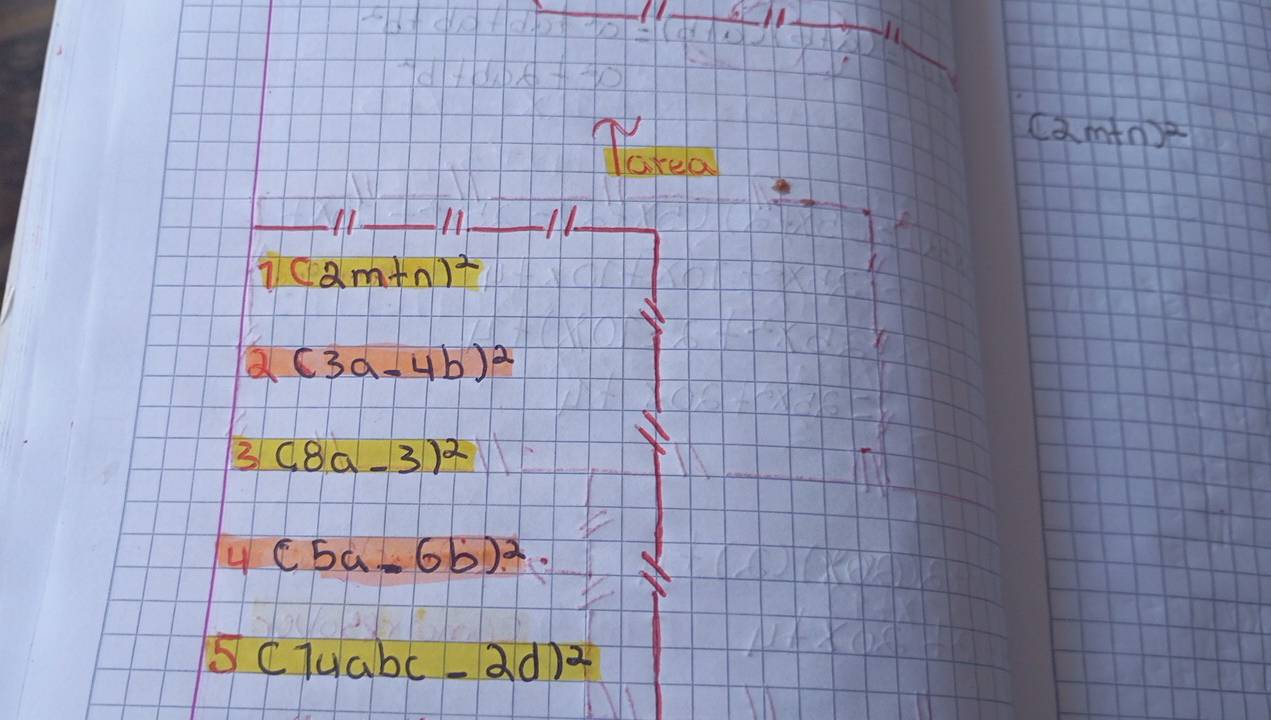 area
(2m+n)²
1 (2m+n)²
2 (3a-4b)²
3 (8a-3)²
4 (5a-6b)².
5 (14abc-2d)²